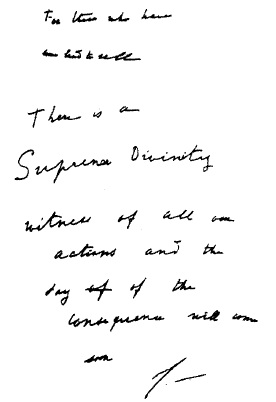 For those who have
to sell
There is a
Supreme Divinity
witness of all our
actions and the
day of of the
consequence will come
soon